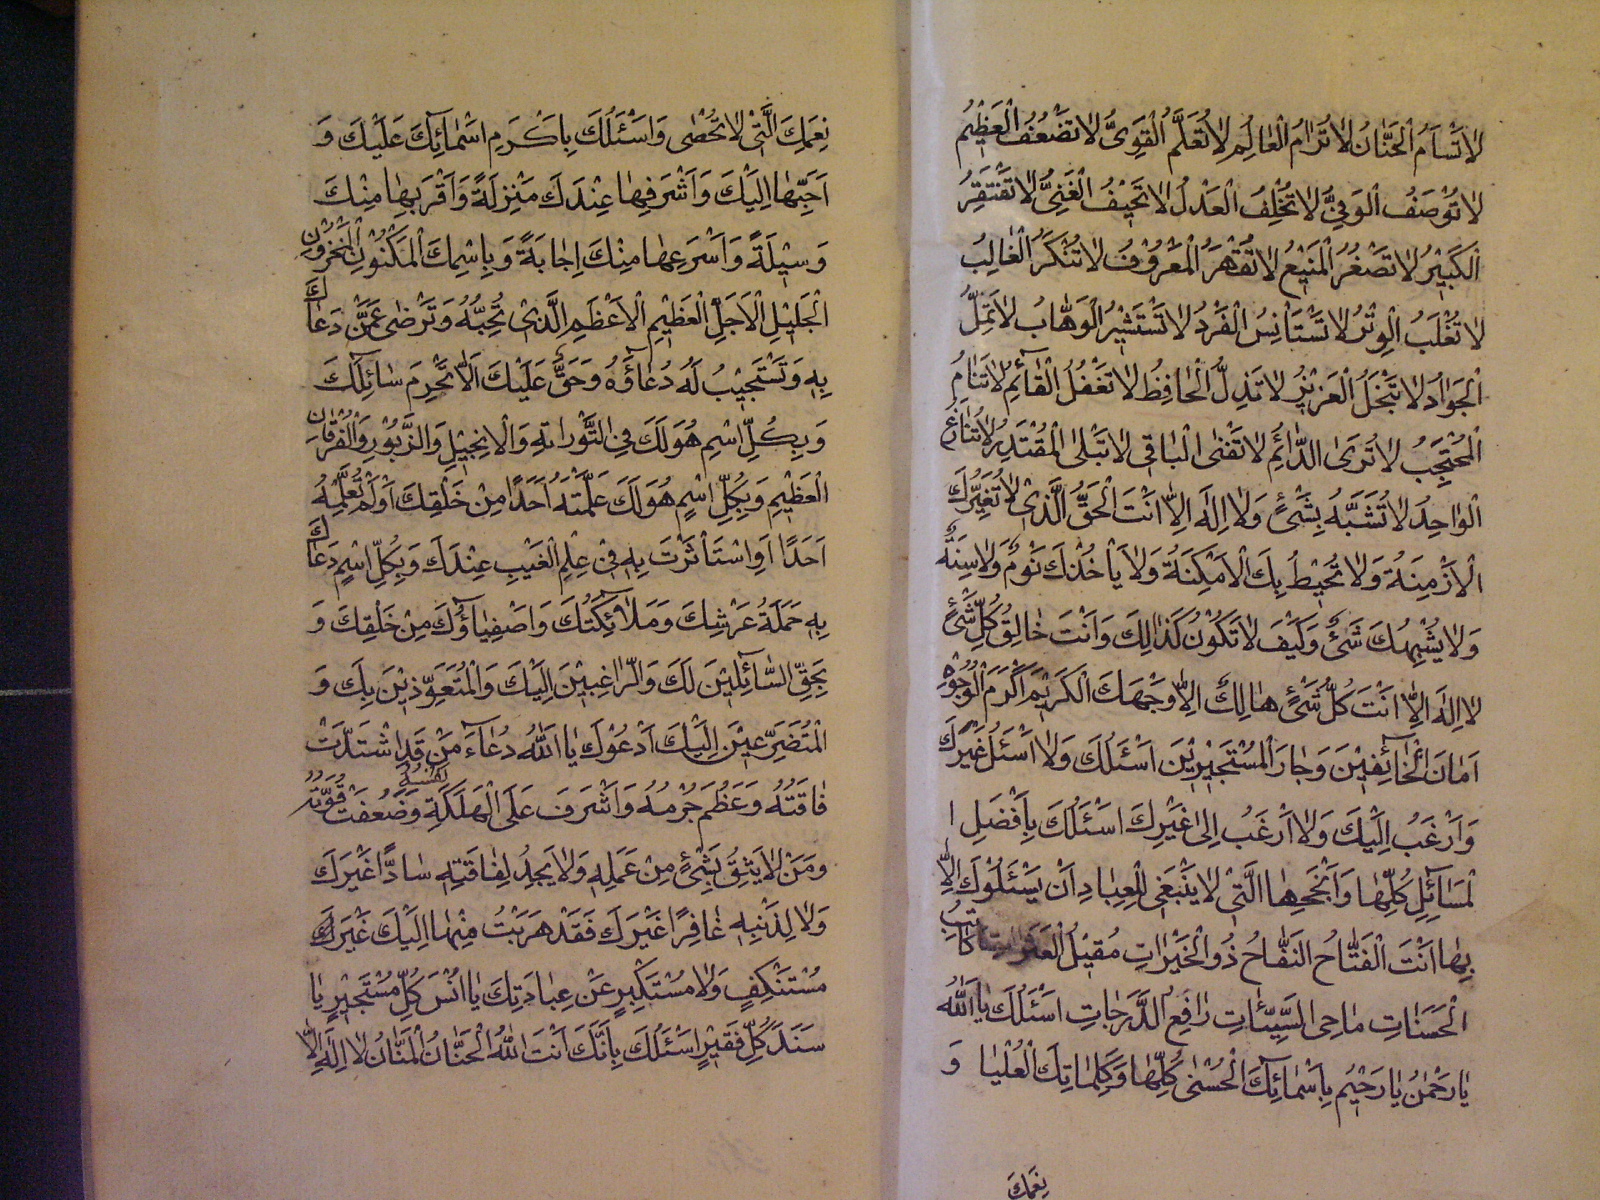 لاٰتَسْاَمُ الْحَنّٰانُ لاٰتُرٰامُ الْعٰالِمُ لاٰتُعَلَّمُ الْقَوِىُّ لاٰتَضْعُفُ الْعَظٖيمُ
لاٰتُوْصَفُ الْوَفِىُّ لاٰتُخْلِفُ الْعَدْلُ لاٰتَحٖيْفُ الْغَنِىُّ لاٰتَفْتَقِرُ
اَلْكَبٖيْرُ لاٰتَصْغُرُ الْمَنٖيْعُ لاٰتُقْهَرُ الْمَعْرُوْفُ لاٰتُنْكَرُ الْغٰالِبُ
لاٰتُغْلَبُ الْوِتْرُ لاٰتَسْتَاْنِسُ الْفَرْدُ لاٰتَسْتَشٖيْرُ الْوَهّٰابُ لاٰتَمِلُّ
الْجَوٰادُ لاٰتَبْخَلُ الْعَزٖيْزُ لاٰتَذِلُّ الْحٰافِظُ لاٰتَغْفُلُ الْقٰآئِمُ لاٰتَنٰامُ
الْمُحْتَجِبُ لاٰتُرٰى الدّٰآئِمُ لاٰتَفْنٰى الْبٰاقٖى لاٰتَبْلٰى الْمُقْتَدِرُ لاٰتُنٰازَعُ
الْوٰاحِدُ لاٰتُشَبَّهُ بِشَىْئٍ وَلاٰ اِلٰهَ اِلاّٰ اَنْتَ الْحَقُّ الَّذٖىْ لاٰتُغَيِّرُكَ
الْاَزْمِنَةُ وَلاٰ تُحٖيْطُ بِكَ الْاَمْكِنَةُ وَلاٰ يَاْخُذُكَ نَوْمٌ وَلاٰسِنَةٌ
وَلاٰيُشْبِهُكَ شَىْئٌ وَكَيْفَ لاٰتَكُوْنُ كَذٰلِكَ وَاَنْتَ خٰالِقُ كُلِّ شَىْئٍ
لاٰاِلٰهَ اِلاّٰ اَنْتَ كُلُّ شَىْئٍ هٰالِكٌ اِلاّٰ وَجْهَكَ الْكَرٖيْمَ اَكْرَمَ الْوُجُوْهِ
اَمٰانَ الْخٰآئِفٖيْنَ وَجٰارَ الْمُسْتَجٖيْرٖيْنَ اَسْئَلُكَ وَلاٰ اَسْئَلُ غَيْرَكَ
وَاَرْغَبُ اِلَيْكَ وَلاٰ اَرْغَبُ اِلٰى غَيْرِكَ اَسْئَلُكَ بِاَفْضَلِ ا
لْمَسٰآئِلِ كُلِّهٰا وَاَنْجَحِهٰا الَّتٖىْ لاٰيَنْبَغٖى لِلْعِبٰادِ اَنْ يَسْئَلُوْكَ اِلاّٰ
بِهٰا اَنْتَ الْفَتّٰاحُ النَّفّٰاحُ ذُوالْخَيْرٰاتِ مُقٖيْلُ الْعَثَرٰاتِ كٰاتِبُ
الْحَسَنٰاتِ مٰاحِى السَّيِّئٰاتِ رٰافِعُ الدَّرَجٰاتِ اَسْئَلُكَ يٰا اَللّٰهُ
يٰا رَحْمٰنُ يٰا رَحٖيْمُ بِاَسْمٰآئِكَ الْحُسْنٰى كُلِّهٰا وَكَلِمٰاتِكَ الْعُلْيٰا وَ
نِعَمِكَ
نِعَمِكَ الَّتٖىْ لاٰتُحْصٰى وَاَسْئَلُكَ بِاَكْرَمِ اَسْمٰآئِكَ عَلَيْكَ وَ
اَحَبِّهٰا اِلَيْكَ وَاَشْرَفِهٰا عِنْدَكَ مَنْزِلَةً وَاَقْرَبِهٰا مِنْكَ
وَسٖيْلَةً وَاَسْرَعِهٰا مِنْكَ اِجٰابَةً وَبِاسْمِكَ الْمَكْنُوْنِ الْمَخْزُوْنِ
الْجَلٖيْلِ الْاَجَلِّ الْعَظٖيْمِ الْاَعْظَمِ الَّذٖىْ تُحِبُّهُ وَتَرْضٰى عَمَّنْ دَعٰاكَ
بِهٖ وَتَسْتَجٖيْبُ لَهُ دُعٰآؤَهُ وَحَقٌّ عَلَيْكَ اَلاّٰ تَحْرِمَ سٰآئِلَكَ
وَبِكُلِّ اسْمٍ هُوَ لَكَ فِى التَّوْرٰاتِ وَالْاِنْجٖيْلِ وَالزَّبُوْرِ وَالْفُرْقٰانِ
الْعَظٖيْمِ وَبِكُلِّ اسْمٍ هُوَ لَكَ عَلَّمْتَهُ اَحَدًا مِنْ خَلْقِكَ اَوْلَمْ تُعَلِّمْهُ
اَحَدًا اَوِاسْتَاْثَرْتَ بِهٖ فٖىْ عِلْمِ الْغَيْبِ عِنْدَكَ وَبِكُلِّ اسْمٍ دَعٰاكَ
بِهٖ حَمَلَةُ عَرْشِكَ وَمَلآٰئِكَتُكَ وَاَصْفِيٰآؤُكَ مِنْ خَلْقِكَ وَ
بِحَقِّ السّٰآئِلٖيْنَ لَكَ وَالرّٰاغِبٖيْنَ اِلَيْكَ وَالْمُتَعَوِّذٖيْنَ بِكَ وَ
الْمُتَضَرِّعٖيْنَ اِلَيْكَ اَدْعُوْكَ يٰا اَللّٰهُ دُعٰآءَ مَنْ قَدِاشْتَدَّتْ
فٰاقَتُهُ وَعَظُمَ جُرْمُهُ وَاَشْرَفَ عَلَى الْهَلَكَةِ نَفْسُهُ وَضَعُفَتْ قُوَّتُهُ
وَمَنْ لاٰيَثِقُ بِشَىْئٍ مِنْ عَمَلِهٖ وَلاٰيَجِدُ لِفٰاقَتِهٖ سٰادًّا غَيْرَكَ
وَلاٰ لِذَنْبِهٖ غٰافِرًا غَيْرَكَ فَقَدْ هَرَبْتُ مِنْهٰا اِلَيْكَ غَيْرَ
مُسْتَنْكِفٍ وَلاٰ مُسْتَكْبِرٍ عَنْ عِبٰادَتِكَ يٰا اُنْسَ كُلِّ مُسْتَجٖيْرٍ يٰا
سَنَدَ كُلِّ فَقٖيْرٍ اَسْئَلُكَ بِاَنَّكَ اَنْتَ اللّٰهُ الْحَنّٰانُ الْمَنّٰانُ لاٰ اِلٰهَ اِلاّٰ